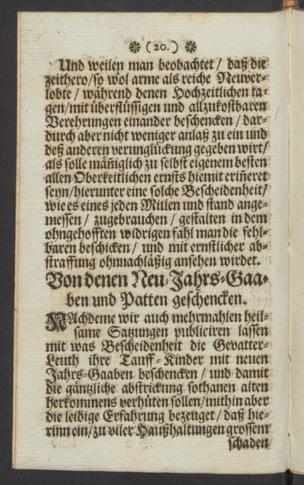 (20.)
Und weilen man beobachtet / daß die
zeithero / so wol arme als reiche Neuver-
lobte / während denen Hochzeitlichen ta-
gen / mit überflüssigen und allzukostbaren
Verehrungen einander beschencken / dar-
durch aber nicht weniger anlaß zu ein und
deß anderen verunglückung gegeben wirt /
als solle mäñiglich zu selbst eigenem besten
allen Oberkeitlichen ernsts hiemit eriñeret
seyn / hierunter eine solche Bescheidenheit /
wie es eines jeden Mitlen und stand ange-
messen / zugebrauchen / gestalten in dem
ohngehofften widrigen fahl man die fehl-
baren beschicken / und mit ernstlicher ab-
straffung ohnnachläßig ansehen wirdet.
Von denen Neu-Jahrs-Gaa-
ben und Patten geschencken.
NAchdeme wir auch mehrmahlen heil-
same Satzungen publiciren lassen
mit was Bescheidenheit die Gevatter-
Leuth ihre Tauff-Kinder mit neuen
Jahrs-Gaaben beschencken / und damit
die gäntzliche abstrickung sothanen alten
herkommens verhüten sollen / mithin aber
die leidige Erfahrung bezeuget / daß hie-
rinn ein / zu viler Haußhaltungen grossem
schaden